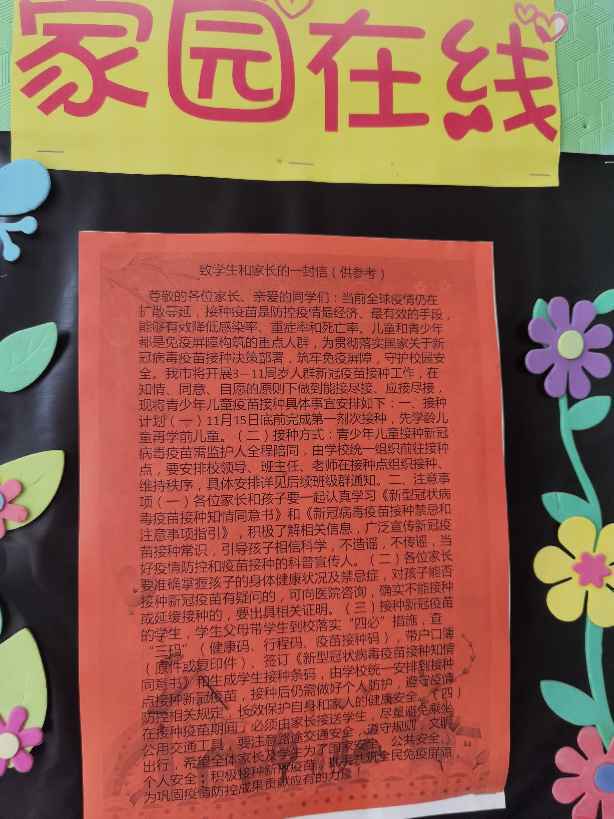 家园在线
致学生和家长的一封信（供参考）
尊敬的各位家长、亲爱的同学们：当前全球疫情仍在
扩散蔓延，接种疫苗是防控疫情最经济、最有效的手段，
能够有效降低感染率、重症率和死亡率。儿童和青少年
都是免疫屏障构筑的重点人群，为贯彻落实国家关于新
冠病毒疫苗接种决策部署，筑牢免疫屏障，守护校园安
全。我市将开展3—11周岁人群新冠疫苗接种工作，在
知情、同意、自愿的原则下做到能接尽接、应接尽接，
现将青少年儿童疫苗接种具体事宜安排如下：一、接种
计划（一）11月15日底前完成第一剂次接种，先学龄儿
童再学前儿童。（二）接种方式：青少年儿童接种新冠
病毒疫苗需监护人全程陪同，由学校统一组织前往接种
点，要安排校领导、班主任、老师在接种点组织接种、
维持秩序，具体安排详见后续班级群通知。二、注意事
项（一）各位家长和孩子要一起认真学习《新型冠状病
毒疫苗接种知情同意书》和《新冠病毒疫苗接种禁忌和
注意事项指引》，积极了解相关信息，广泛宣传新冠疫
苗接种常识，引导孩子相信科学，不造谣，不传谣，当
好疫情防控和疫苗接种的科普宣传人。（二）各位家长
要准确掌握孩子的身体健康状况及禁忌症，对孩子能否
接种新冠疫苗有疑问的，可向医院咨询，确实不能接种
或延缓接种的，要出具相关证明。（三）接种新冠疫苗
的学生，学生父母带学生到校落实“四必”措施，查
“三码”（健康码、行程码、疫苗接种码），带户口簿
（原件或复印件）、签订《新型冠状病毒疫苗接种知情
同意书》和生成学生接种条码，由学校统一安排到接种
点接种新冠疫苗，接种后仍需做好个人防护，遵守疫情
防控相关规定，长效保护自身和家人的健康安全。（四）
在接种疫苗期间，必须由家长接送学生，尽量避免乘坐
公用交通工具，要注意路途交通安全，遵守规则，文明
出行，希望全体家长及学生为了国家安全、公共安全、
个人安全，积极接种新冠疫苗，携手共筑全民免疫屏障，
为巩固疫情防控成果贡献应有的力量！